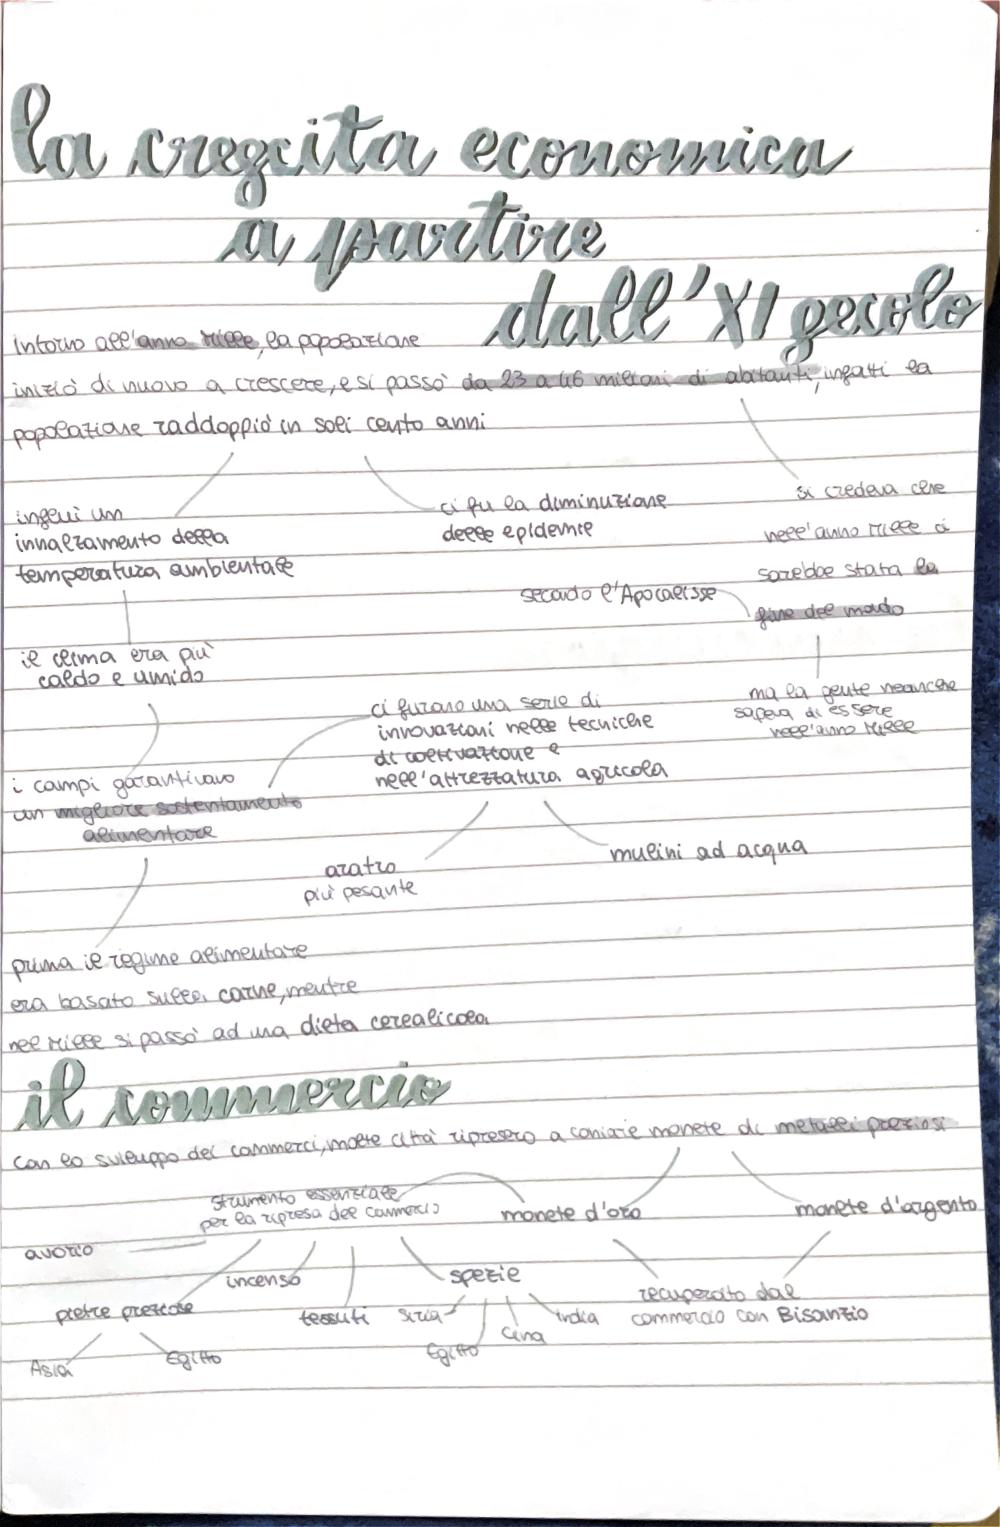 la crescita economica
a partire
dall'XI secolo
intorno all'anno Mille, la popolazione
iniziò di nuovo a crescere, e si passò da 23 a 46 milioni di abitanti, infatti la
popolazione raddoppiò in soli cento anni
influì un
innalzamento della
temperatura ambientale
ci fu la diminuzione
delle epidemie
si credeva che
nell'anno Mille ci
sarebbe stata la
fine del mondo
secondo l'Apocalisse
il clima era più
caldo e umido
ma la gente neanche
sapeva di essere
nell'anno Mille
ci furono una serie di
innovazioni nelle tecniche
di coltivazione e
nell'attrezzatura agricola
i campi garantivano
un migliore sostentamento
alimentare
aratro
più pesante
mulini ad acqua
prima il regime alimentare
era basato sulla carne, mentre
nel Mille si passò ad una dieta cerealicola
il commercio
con lo sviluppo dei commerci, molte città ripresero a coniare monete di metalli preziosi
strumento essenziale
per la ripresa del commercio
monete d'oro
monete d'argento
avorio
pietre preziose
incenso
tessuti
spezie
recuperato dal
commercio con Bisanzio
Siria
Egitto
Cina
India
Asia
Egitto